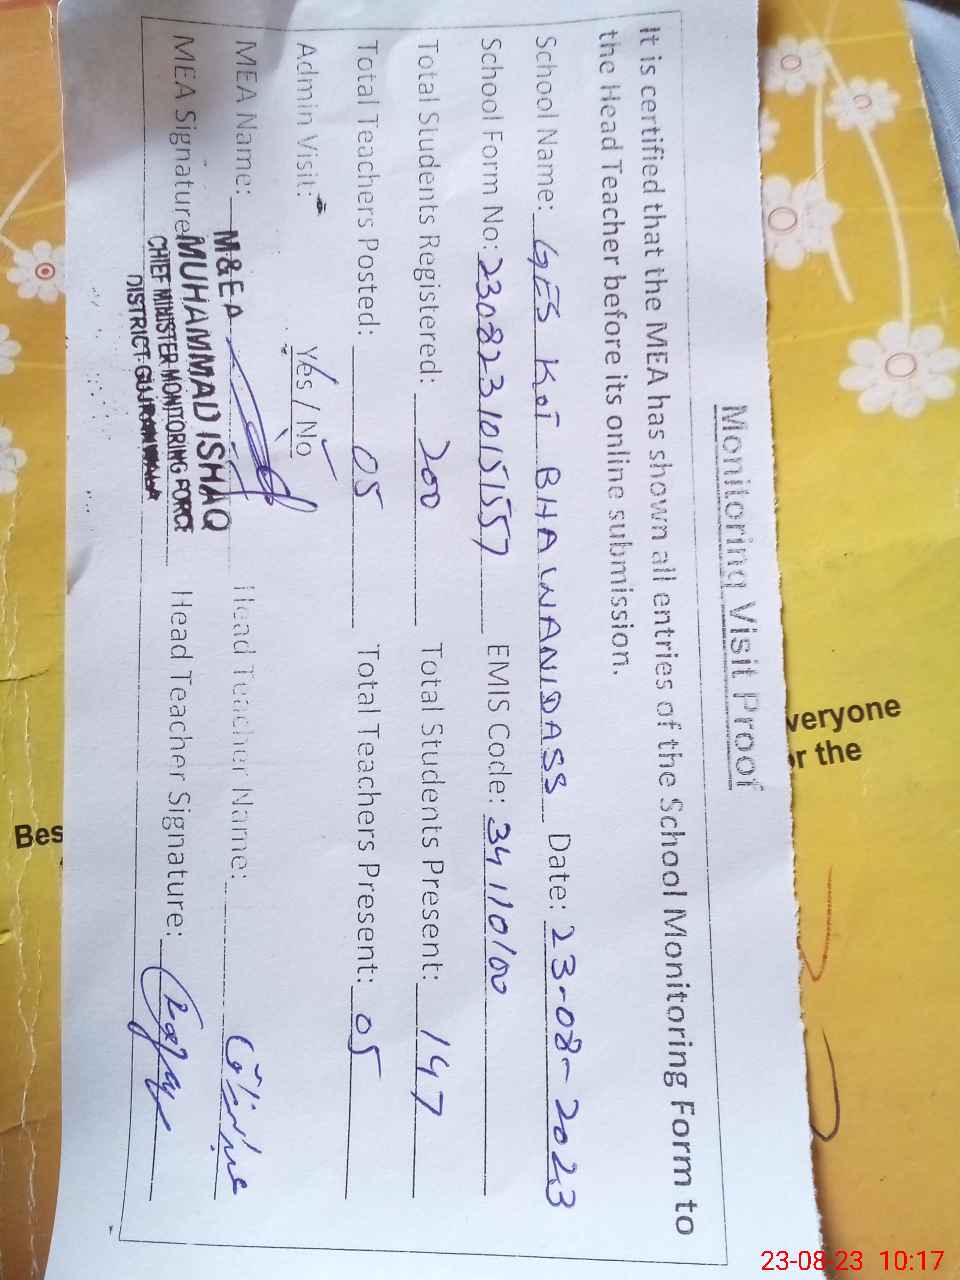 Monitoring Visit Proof
It is certified that the MEA has shown all entries of the School Monitoring Form to
the Head Teacher before its online submission.
School Name: GES KOT BHAWANIDASS Date: 23-08-2023
School Form No: 23082310151557 EMIS Code: 34110100
Total Students Registered: 200 Total Students Present: 147
Total Teachers Posted: 05 Total Teachers Present: 05
Admin Visit: Yes / No
MEA Name: M&EA Head Teacher Name:
MEA Signature MUHAMMAD ISHAQ Head Teacher Signature:
CHIEF MINISTER MONITORING FORCE
DISTRICT GUJRANWALA
veryone
r the
Bes
23-08-23 10:17